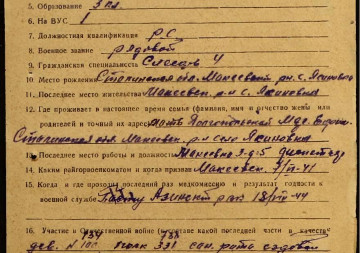 5. Образование 3 кл.
6. На ВУС 1
7. Должностная квалификация РС
8. Военное звание рядовой
9. Гражданская специальность Слесарь 4
10. Место рождения Сталинская обл. Макеевский рн. с. Ясиновка
11. Последнее место жительства Макеевск. р-н с. Ясиновка
12. Где проживает в настоящее время семья (фамилия, имя и отчество жены или
родителей и точный их адрес) мать
Сталинская обл. Макеевск. р-н село Ясиновка
13. Последнее место работы и должность Макеевка з-д
14. Каким райгорвоенкоматом и когда призван Макеевск. 41
15. Когда и где проходил последний раз медкомиссию и результат годности к
военной службе 44
16. Участие в Отечественной войне (в составе какой последней части и в качестве
див. полк 331 сан. рота ездовой